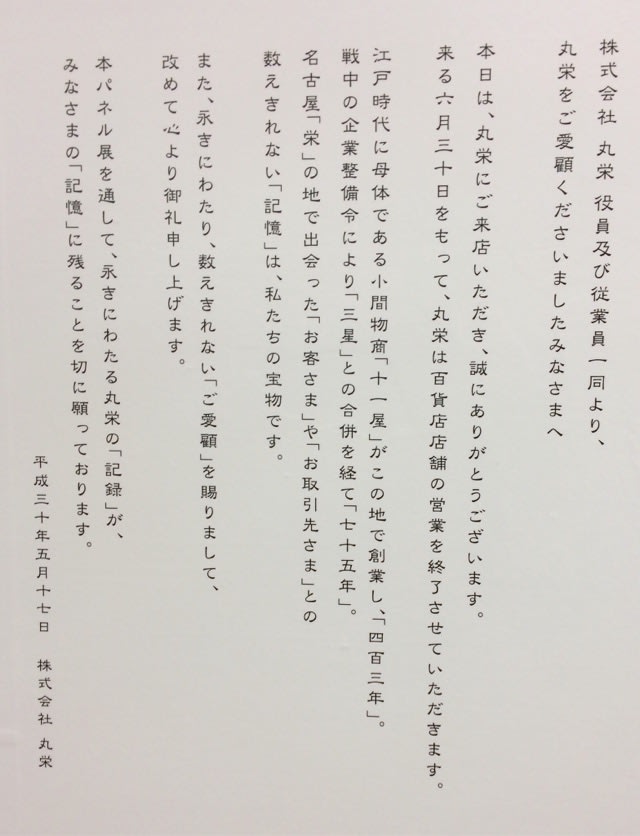 株式会社 丸栄 役員及び従業員一同より、
丸栄をご愛顧くださいましたみなさまへ
本日は、丸栄にご来店いただき、誠にありがとうございます。
来る六月三十日をもって、丸栄は百貨店店舗の営業を終了させていただきます。
江戸時代に母体である小間物商「十一屋」がこの地で創業し、「四百三年」。
戦中の企業整備令により「三星」との合併を経て「七十五年」。
名古屋「栄」の地で出会った「お客さま」や「お取引先さま」との
数えきれない「記憶」は、私たちの宝物です。
また、永きにわたり、数えきれない「ご愛顧」を賜りまして、
改めて心より御礼申し上げます。
本パネル展を通して、永きにわたる丸栄の「記録」が、
みなさまの「記憶」に残ることを切に願っております。
平成三十年五月十七日 株式会社 丸栄